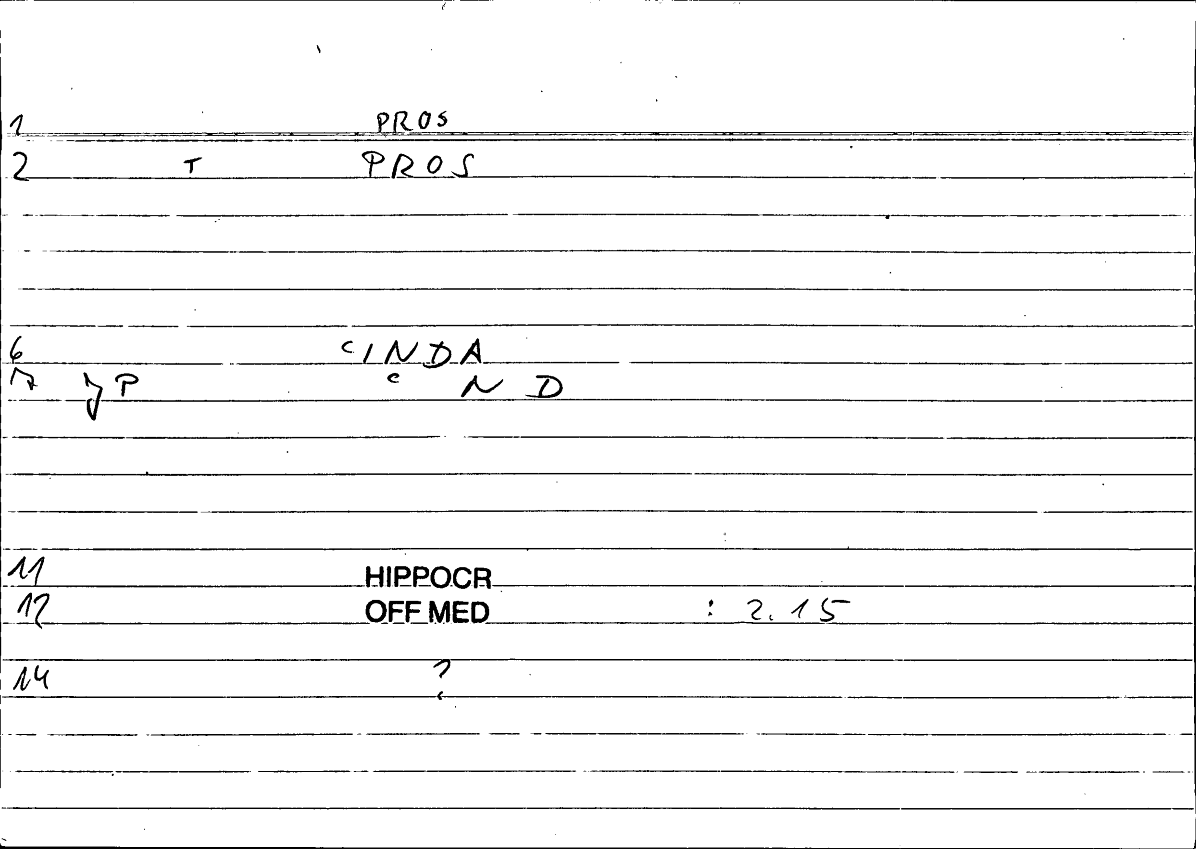 1 PROS
2 T PROS
6 ʿINDA
7 P ʿ N D
11 HIPPOCR
12 OFF MED : 2.15
14 ?